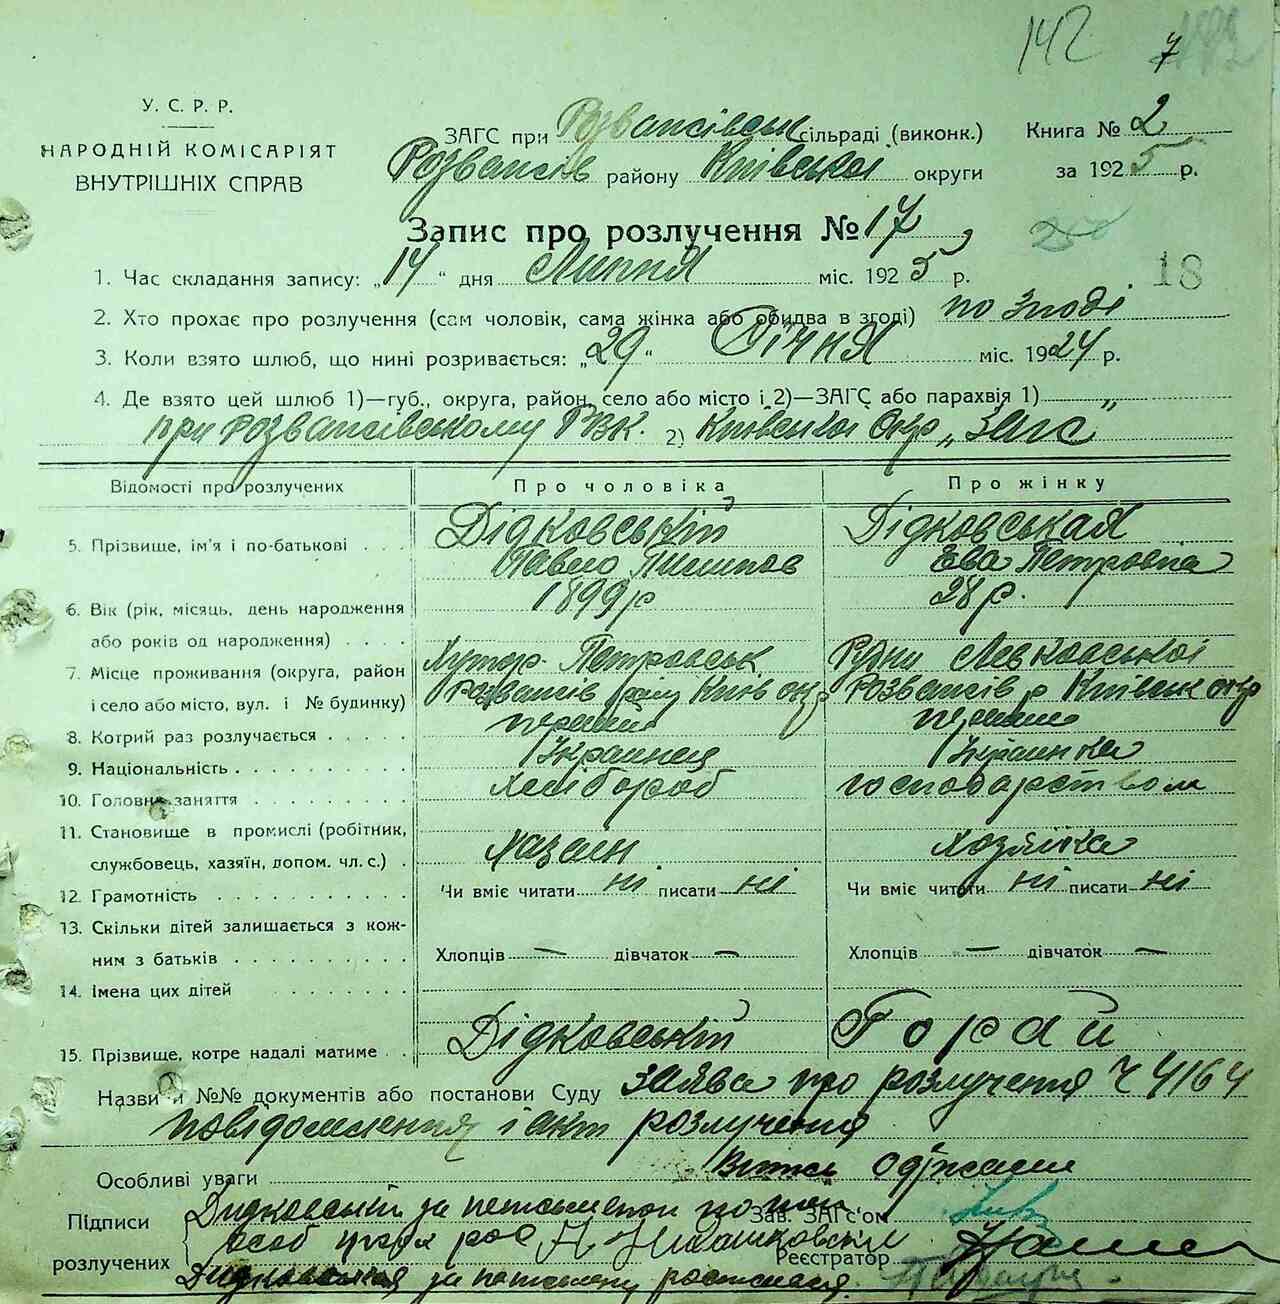 142
7
У. С. Р. Р.
НАРОДНІЙ КОМІСАРІЯТ
ВНУТРІШНІХ СПРАВ
ЗАГС при Розважівськ сільраді (виконк.) Книга № 2
Розважів району Київської округи за 1925 р.
Запис про розлучення № 17
18
1. Час складання запису: „14" дня Липня міс. 1925 р.
2. Хто прохає про розлучення (сам чоловік, сама жінка або обидва в згоді) по згоді
3. Коли взято шлюб, що нині розривається: „29" Січня міс. 1924 р.
4. Де взято цей шлюб 1)—губ., округа, район, село або місто і 2)—ЗАГС або парахвія 1)
при Розважівському РВК. 2) Київської Окр „Загс"
Відомості про розлучених Про чоловіка Про жінку
5. Прізвище, ім'я і по-батькові Дідковський Дідковськая
Павло Пилипов Ева Петровна
6. Вік (рік, місяць, день народження 1899 р 28 р.
або років од народження)
7. Місце проживання (округа, район Хутор Петровськ Рудни Левковської
і село або місто, вул. і № будинку) Розважів райу Київ окр Розважів р Київськ окр
8. Котрий раз розлучається перший перший
9. Національність Украинец Украинка
10. Головне заняття Хлібороб господарством
11. Становище в промислі (робітник,
службовець, хазяїн, допом. чл. с.) Хазаин Хозяйка
12. Грамотність Чи вміє читати ні писати ні Чи вміє читати ні писати ні
13. Скільки дітей залишається з кож-
ним з батьків Хлопців — дівчаток — Хлопців — дівчаток —
14. Імена цих дітей
15. Прізвище, котре надалі матиме Дідковський Горай
Назви и №№ документів або постанови Суду заява про розлучення Ч 4164
повідомлення і акт розлучення
Особливі уваги Витяг одіжали
Підписи Дидковський за неписьмен по
розлучених особ Зав. ЗАГС'ом
Реєстратор
Дидковская за неписьмену росписался.